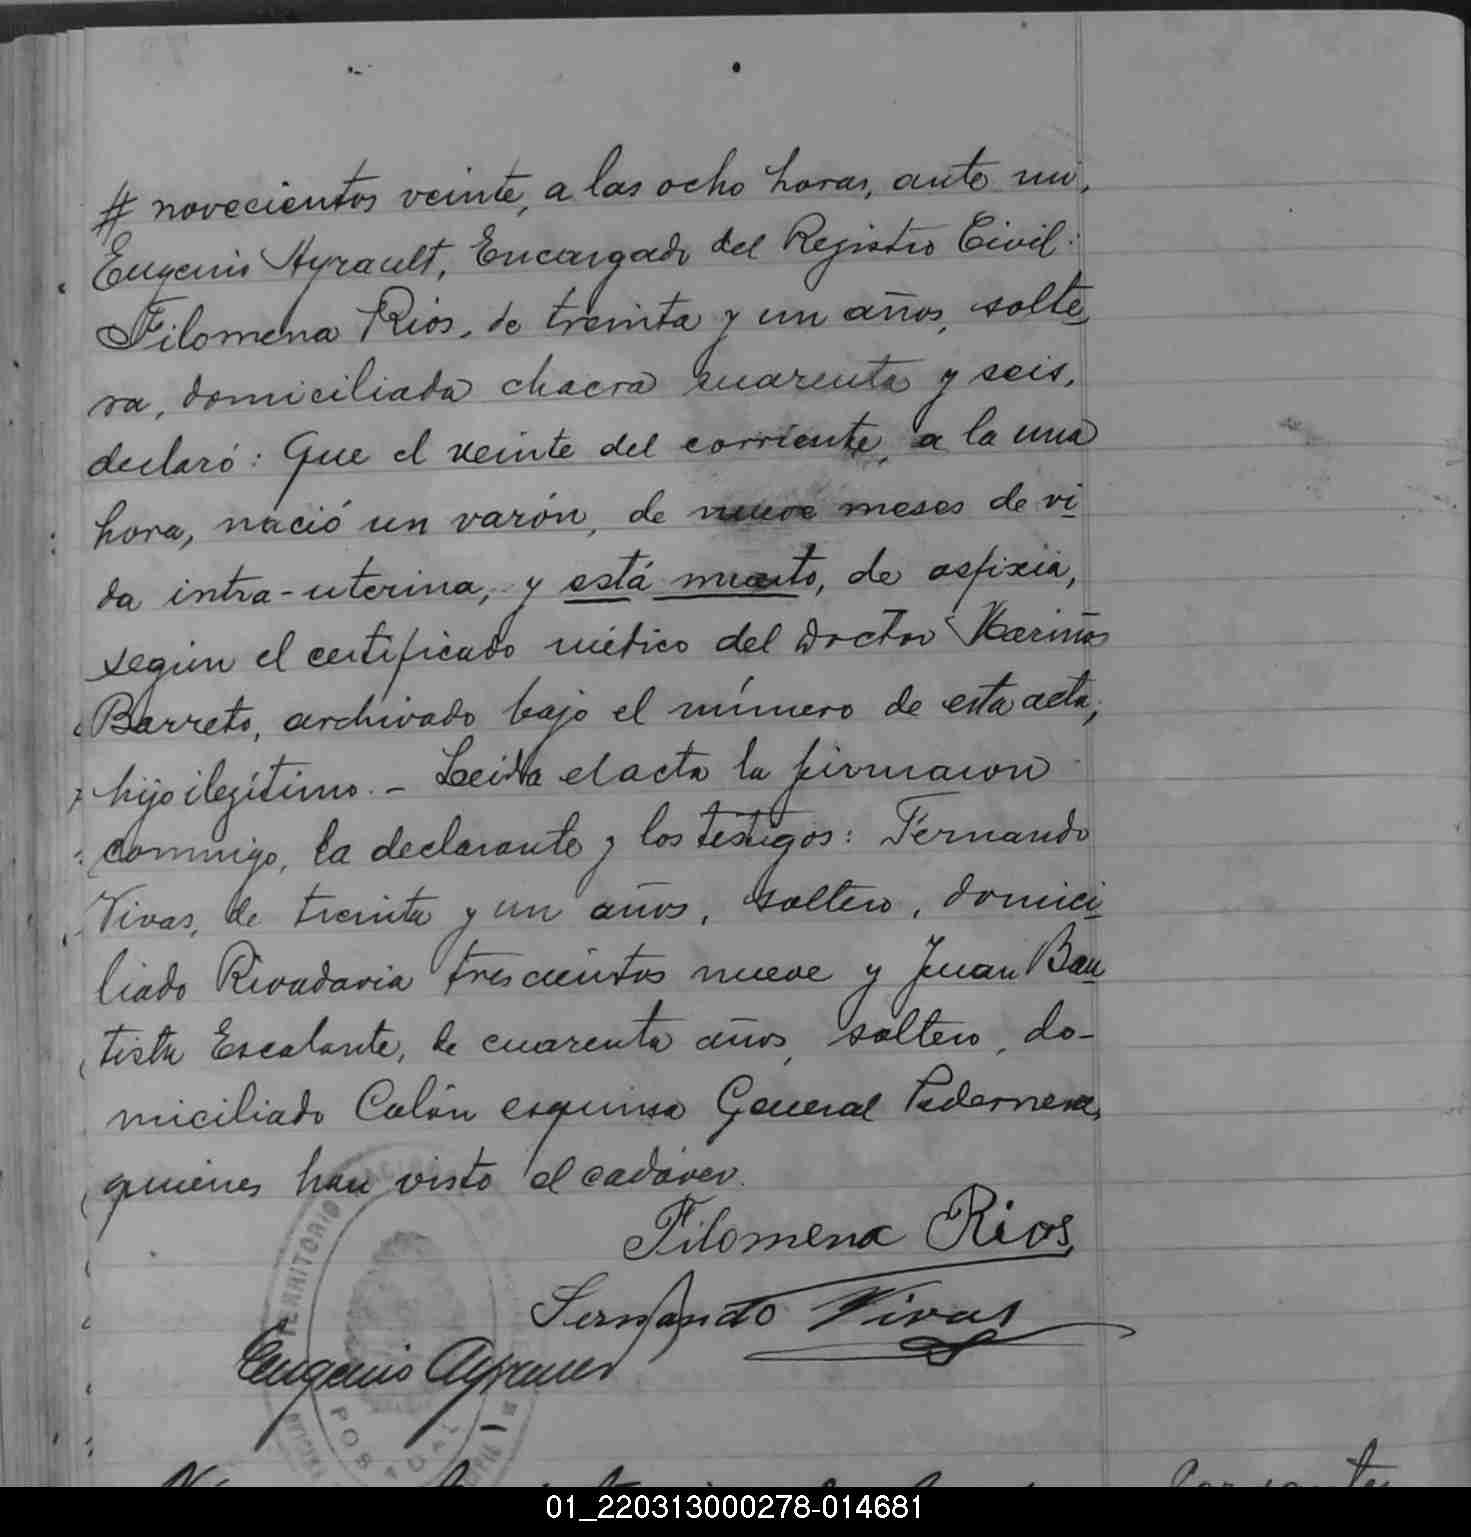 # novecientos veinte, a las ocho horas, ante mi,
Eugenio Ayrault, Encargado del Registro Civil:
Filomena Rios, de treinta y un años, solte
ra, domiciliada chacra cuarenta y seis,
declaró: Que el veinte del corriente, a la una
hora, nació un varón, de nueve meses de vi
da intra-uterina, y está muerto, de asfixia,
según el certificado médico del Doctor Mariño
Barreto, archivado bajo el número de esta acta,
hijo ilegítimo.- Leida el acta la firmaron
conmigo, la declarante y los testigos: Fernando
Vivas, de treinta y un años, soltero, domici
liado Rivadavia trescientos nueve y Juan Bau
tista Escalante, de cuarenta años, soltero, do-
miciliado Colón esquina General Pedernera,
quienes han visto el cadáver.
Filomena Rios
Fernando Vivas
Eugenio Ayrault
TERRITORIO
POSADAS
01_220313000278-014681